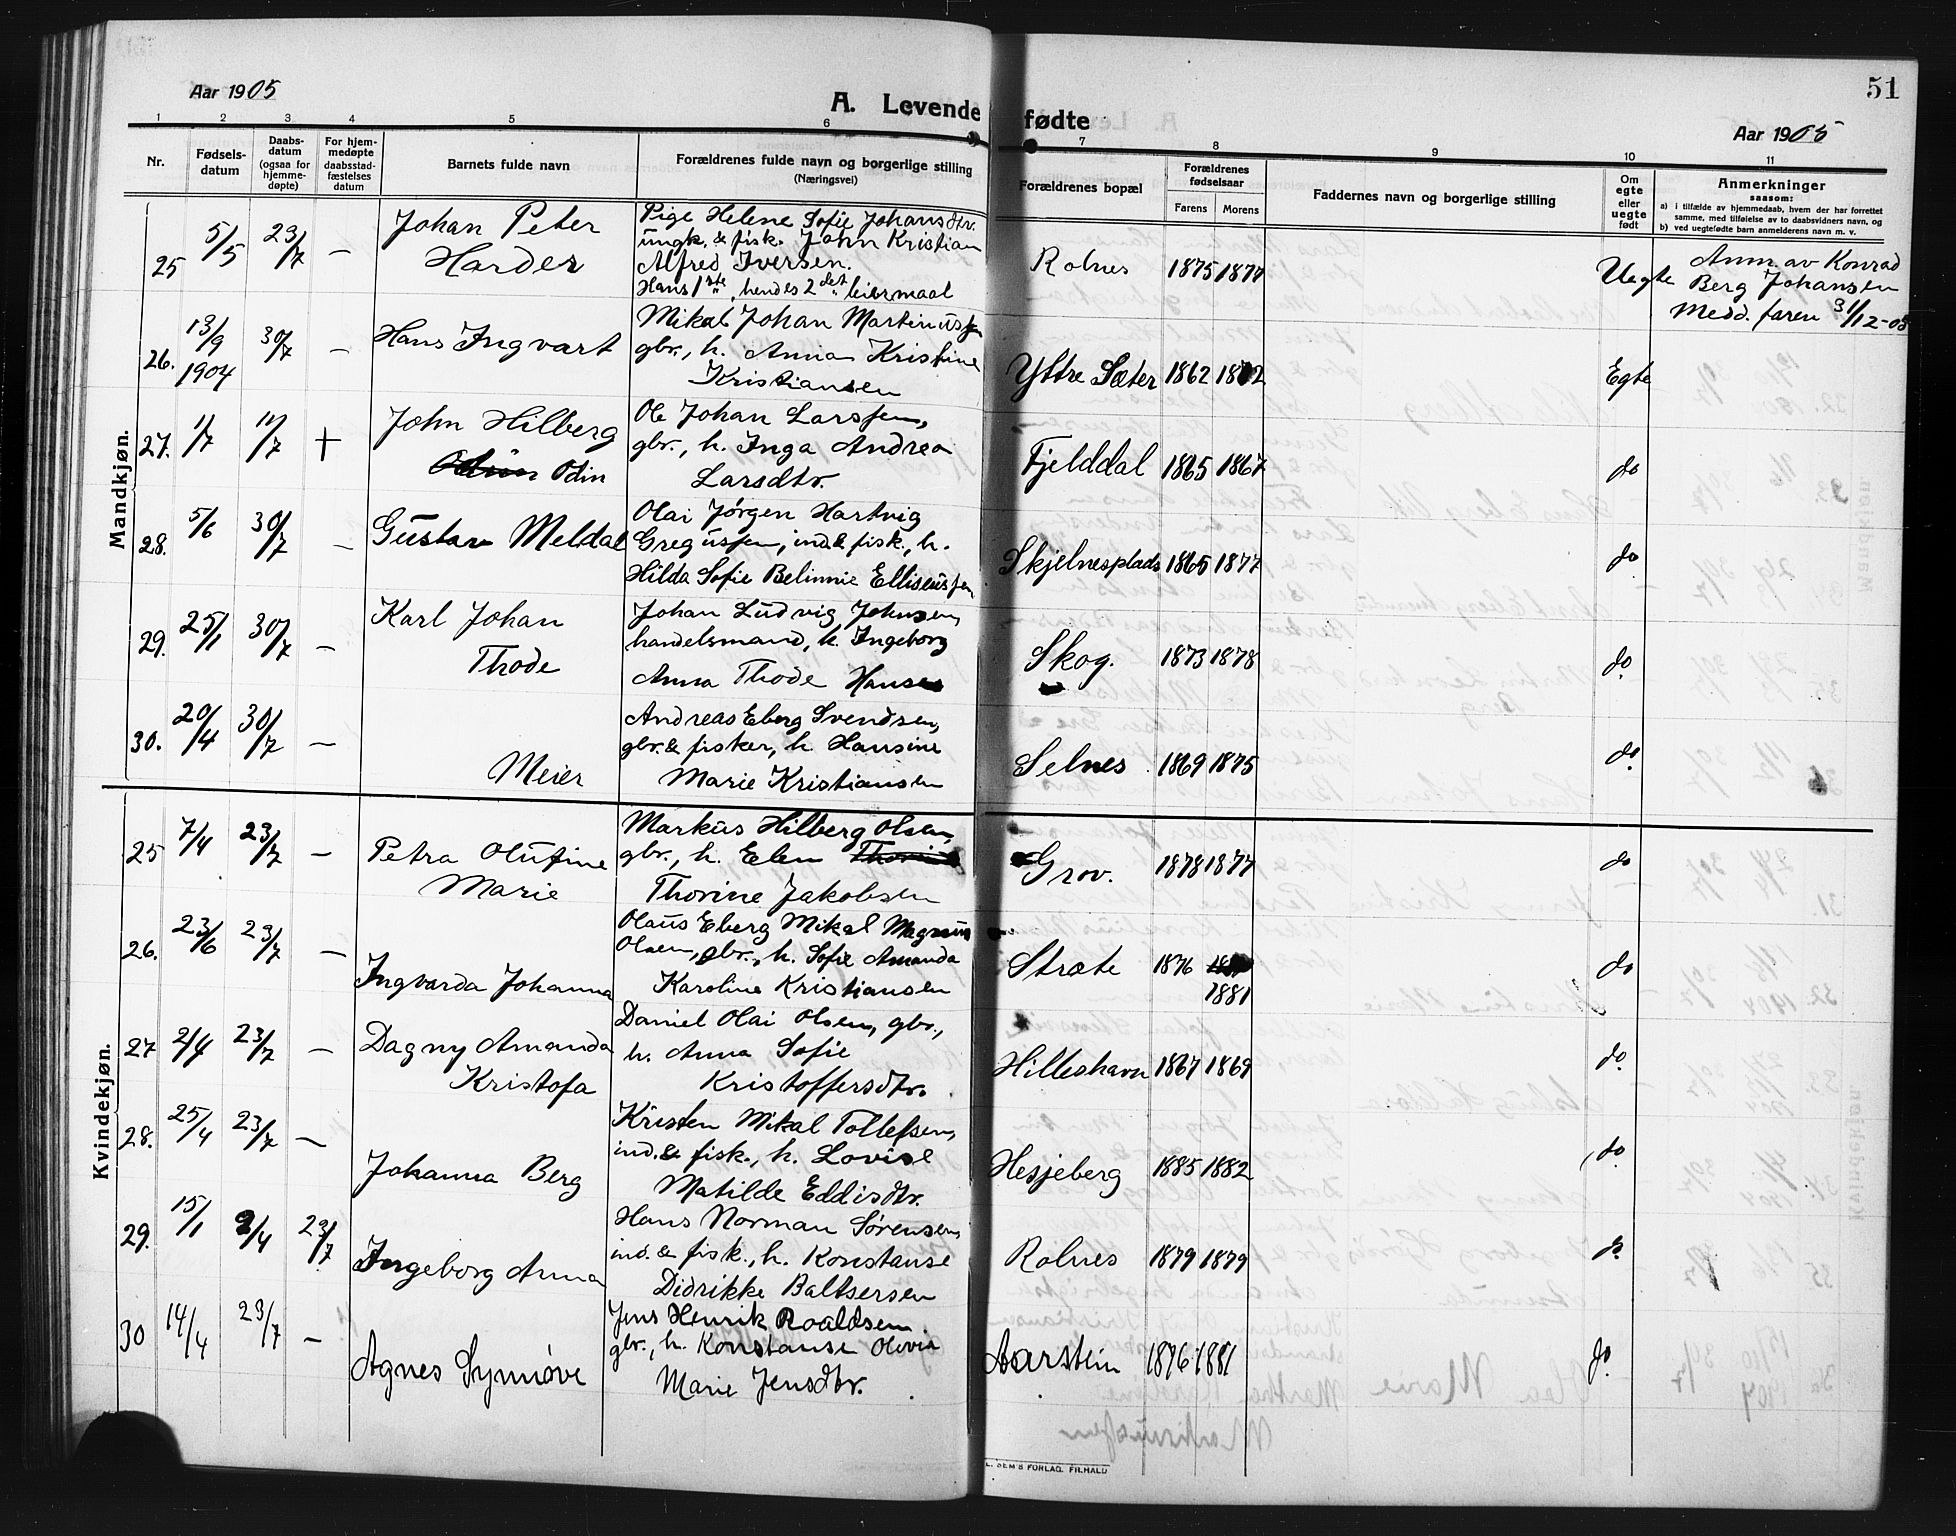 Aar 1905
A. Levende fødte
Aar 1905
51
1 2 3 4 5 6 7 8 9 10 11
Nr.
Fødsels-
datum
Daabs-
datum
(ogsaa for
hjemme-
døpte)
For hjem-
medøpte
daabsstad-
fæstelses
datum
Barnets fulde navn
Forældrenes fulde navn og borgerlige stilling
(Næringsvei)
Forældrenes bopæl
Forældrenes
fødselsaar
Farens Morens
Faddernes navn og borgerlige stilling
Om
egte
eller
uegte
født
Anmerkninger
saasom:
a) i tilfælde av hjemmedaab, hvem der har forrettet
samme, med tilføielse av to daabsvidners navn, og
b) ved uegtefødte barn anmelderens navn m. v.
Mandkjøn.
25 5/5 23/7 — Johan Peter
Harder
Pige Helene Sofie Johansdtr.
ungk. & fisk. John Kristian
Alfred Iversen.
Hans 1ste, hendes 2det leiermaal
Rolnes 1875 1877 Uegte
Anm. av Konrad
Berg Johansen
Medd. faren 31/12-05
26. 13/9 1904 30/7 — Hans Ingvart
Mikal Johan Martinussen
gbr., h. Anna Kristine
Kristiansen
Yttre Sæter 1862 Egte
27. 1/7 11/7 + John Hilberg
Odin
Ole Johan Larssen,
gbr., h. Inga Andrea
Larsdtr.
Fjelddal 1865 1867 do
28. 5/6 30/7 — Gustav Meldal
Olai Jørgen Hartvig
Gregussen, ind. & fisk., h.
Hilda Sofie Belinnie Ellisenssen
Skjelnesplads 1865 1877 do
29. 25/1 30/7 — Karl Johan
Thode
Johan Ludvig Johnsen,
handelsmand, h. Ingeborg
Anna Thode Hansen
Skog. 1873 1878 do
30. 20/4 30/7 —
Meier
Andreas Eberg Svendsen,
gbr. & fisker, h. Hansine
Marie Kristiansen
Selnes 1869 1875 do
Kvindekjøn.
25 7/4 23/7 — Petra Olufine
Marie
Markus Hilberg Olsen,
gbr., h. Elen
Thorine Jakobsen
Grov. 1878 1877 do
26. 23/6 23/7 —
Ingvarda Johanna
Olaus Eberg Mikal Magnus
Olsen, gbr., h. Sofie Amanda
Karoline Kristiansen
Stræte 1876 1881 do
27 2/4 23/7 — Dagny Amanda
Kristofa
Daniel Olai Olsen, gbr.,
h. Anna Sofie
Kristoffersdtr.
Hilleshavn 1867 1869 do.
28. 25/4 23/7 —
Johanna Berg
Kristen Mikal Tollefsen,
ind. & fisk., h. Lovise
Matilde Eddisdtr.
Hesjeberg 1885 1882 do
29. 15/1 2/4 23/7
Ingeborg Anna
Hans Norman Sørensen,
ind. & fisk., h. Konstanse
Didrikke Baltsersen
Rolnes 1879 1879 do
30 14/4 23/7 —
Agnes Synnøve
Jens Henrik Roaldsen
gbr., h. Konstanse Olovia
Marie Jensdtr.
Aarstein 1876 1881 do.
SEM'S FORLAG, F.HALD